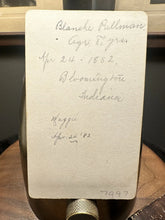 Blanche Pullman
Age 5 yrs.
Apr 24 - 1882,
Bloomington
Indiana
Maggie
Apr. 24 '82
7997